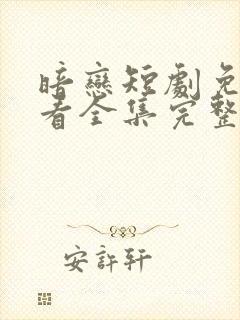 暗戀短劇免
看全集完整
安許轩